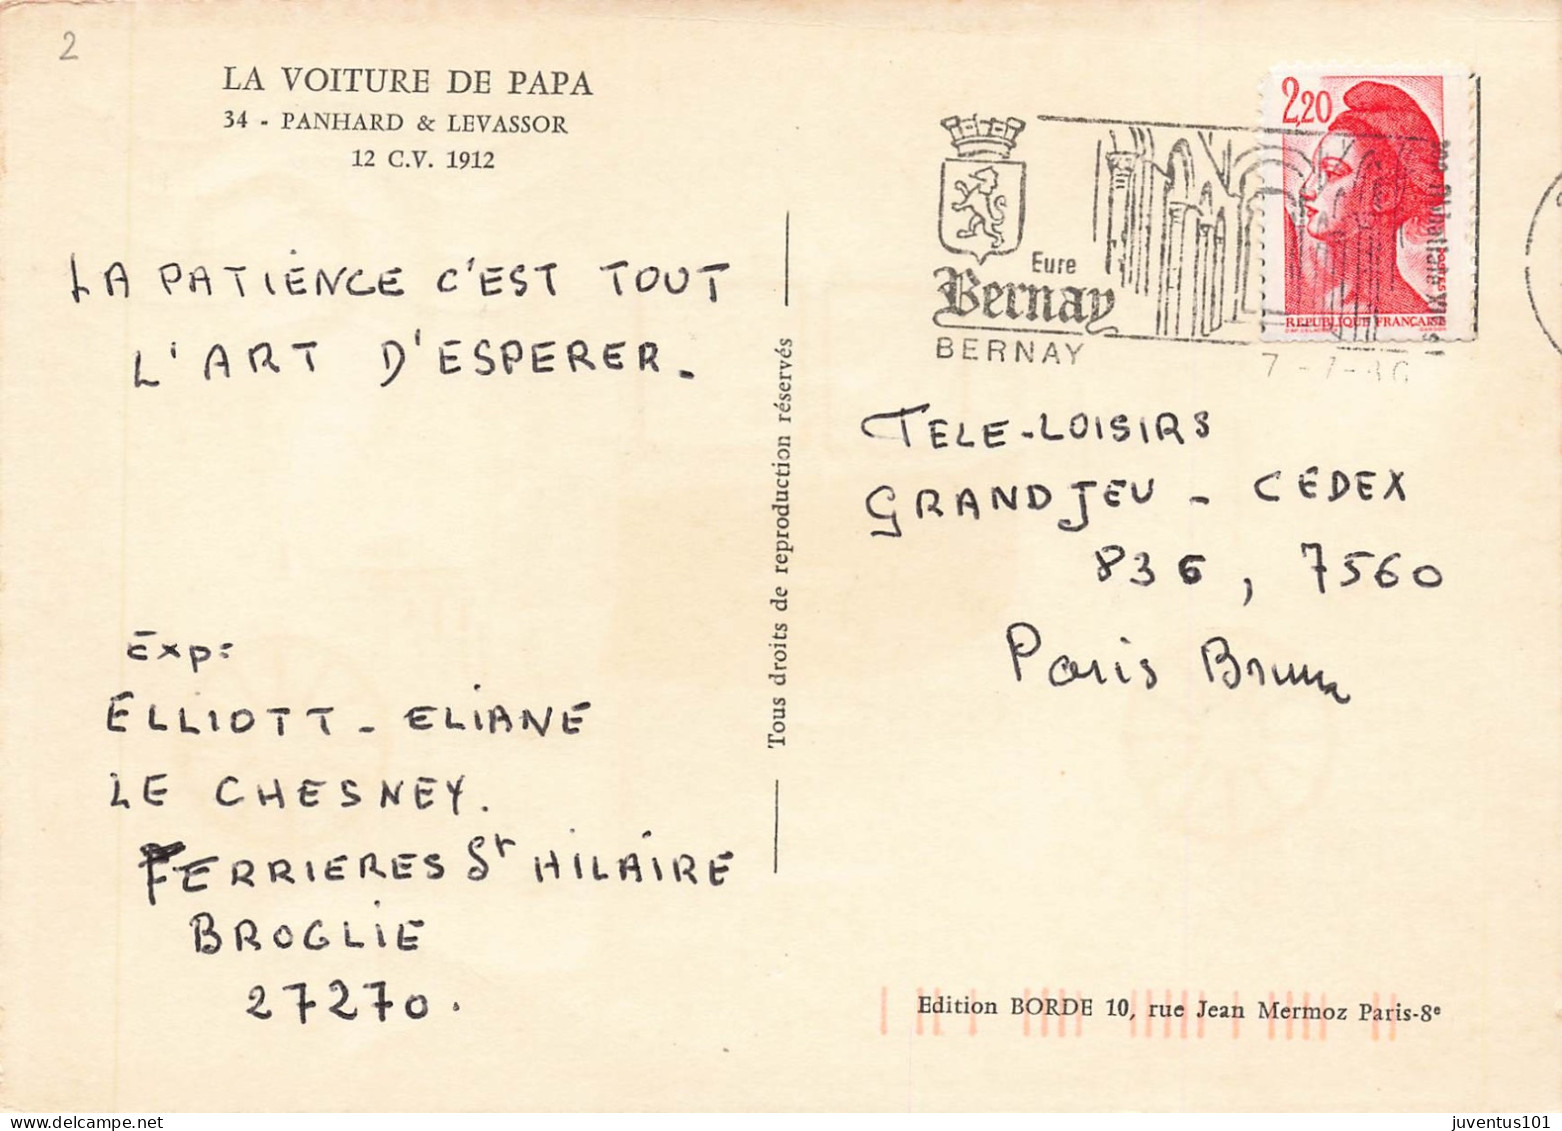 2
LA VOITURE DE PAPA
34 - PANHARD & LEVASSOR
12 C.V. 1912
LA PATIENCE C'EST TOUT
L'ART D'ESPERER.
Exp:
ELLIOTT - ELIANE
LE CHESNEY.
FERRIERES St HILAIRE
BROGLIE
27270.
Tous droits de reproduction réservés
Eure
Bernay
BERNAY
7-7-86
2,20
REPUBLIQUE FRANÇAISE
TELE-LOISIRS
GRAND JEU - CEDEX
836, 7560
Paris Brune
Edition BORDE 10, rue Jean Mermoz Paris-8e
juventus101